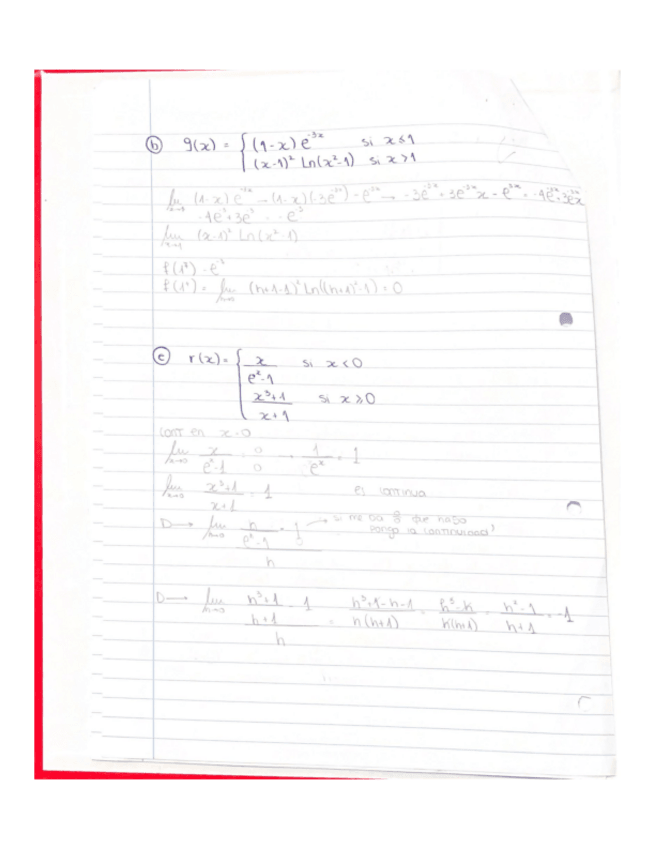 b) g(x) = { (1-x) e^-3x si x≤1
(x-1)² Ln(x²-1) si x>1
lim x→1 (1-x) e^-3x → (1-x)(-3e^-3x) - e^-3x → -3e^-3x + 3e^-3x x - e^-3x = -4e^-3x + 3e^-3x x
-4e^-3 + 3e^-3 = -e^-3
lim x→1 (x-1)² Ln(x²-1)
f(1⁺) = lim h→0 (h+1-1)² Ln((h+1)²-1) = 0
c) r(x) = { x / e^x-1 si x<0
x³+1 / x+1 si x≥0
cont en x=0
lim x→0 x / e^x-1 = 0/0 → 1/e^x = 1
lim x→0 x³+1 / x+1 = 1 es continua
D → lim h / e^x-1 - 1 / h → si me da 0/0 que hago
pongo la continuidad?
D → lim h→0 h³+1 / h+1 - 1 / h = h³+1-h-1 / h(h+1) = h³-h / h(h+1) = h²-1 / h+1 = -1